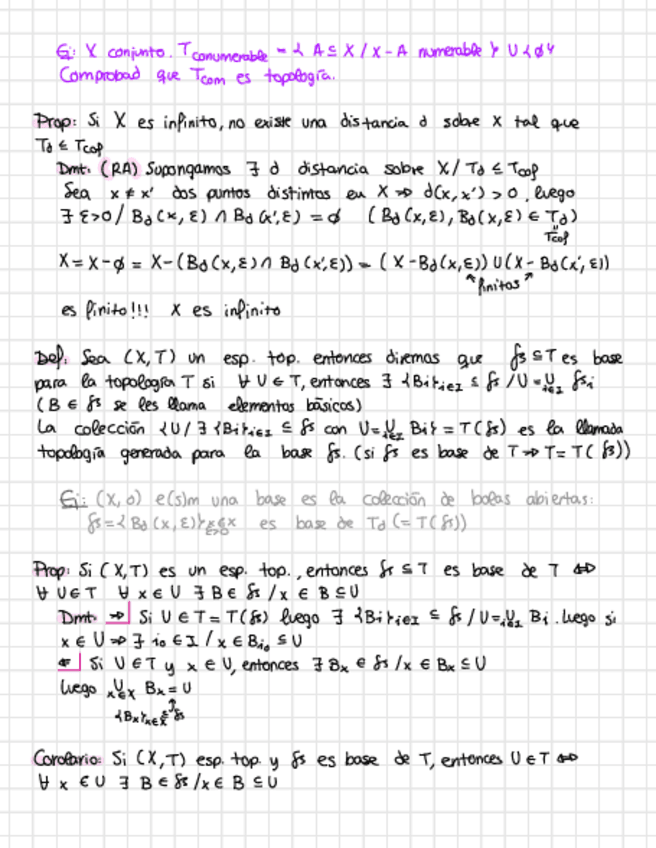 Ej: X conjunto. T conumerable = { A ⊆ X / X-A numerable } ∪ {∅}
Comprobad que Tcon es topología.
Prop: Si X es infinito, no existe una distancia d sobre X tal que
Td ⊆ Tcof
Dmt: (RA) Supongamos ∃ d distancia sobre X / Td ⊆ Tcof
Sea x ≠ x' dos puntos distintos en X ⇒ d(x,x') > 0, luego
∃ ε>0 / Bd(x,ε) ∩ Bd(x',ε) = ∅ (Bd(x,ε), Bd(x,ε) ∈ Td)
Tcof
X = X-∅ = X-(Bd(x,ε) ∩ Bd(x',ε)) = (X-Bd(x,ε)) ∪ (X-Bd(x',ε))
finitos
es finito!!! X es infinito
Def: Sea (X,T) un esp. top. entonces diremos que β ⊆ T es base
para la topología T si ∀ U ∈ T, entonces ∃ {Bi}i∈I ⊆ β / U = ∪i∈I βi
(B ∈ β se les llama elementos básicos)
La colección {U / ∃ {Bi}i∈I ⊆ β con U = ∪i∈I Bi} = T(β) es la llamada
topología generada para la base β. (si β es base de T ⇒ T = T(β))
Ej: (X,d) e(s)m una base es la colección de bolas abiertas:
β = {Bd(x,ε)} x∈X ε>0 es base de Td (= T(β))
Prop: Si (X,T) es un esp. top., entonces β ⊆ T es base de T ⇔
∀ U ∈ T ∀ x ∈ U ∃ B ∈ β / x ∈ B ⊆ U
Dmt: ⇒| Si U ∈ T = T(β) luego ∃ {Bi}i∈I ⊆ β / U = ∪i∈I Bi. Luego si
x ∈ U ⇒ ∃ i0 ∈ I / x ∈ Bi0 ⊆ U
⇐| Si U ∈ T y x ∈ U, entonces ∃ Bx ∈ β / x ∈ Bx ⊆ U
luego ∪x∈X Bx = U
{Bx}x∈X ⊆ β
Corolario: Si (X,T) esp. top. y β es base de T, entonces U ∈ T ⇔
∀ x ∈ U ∃ B ∈ β / x ∈ B ⊆ U